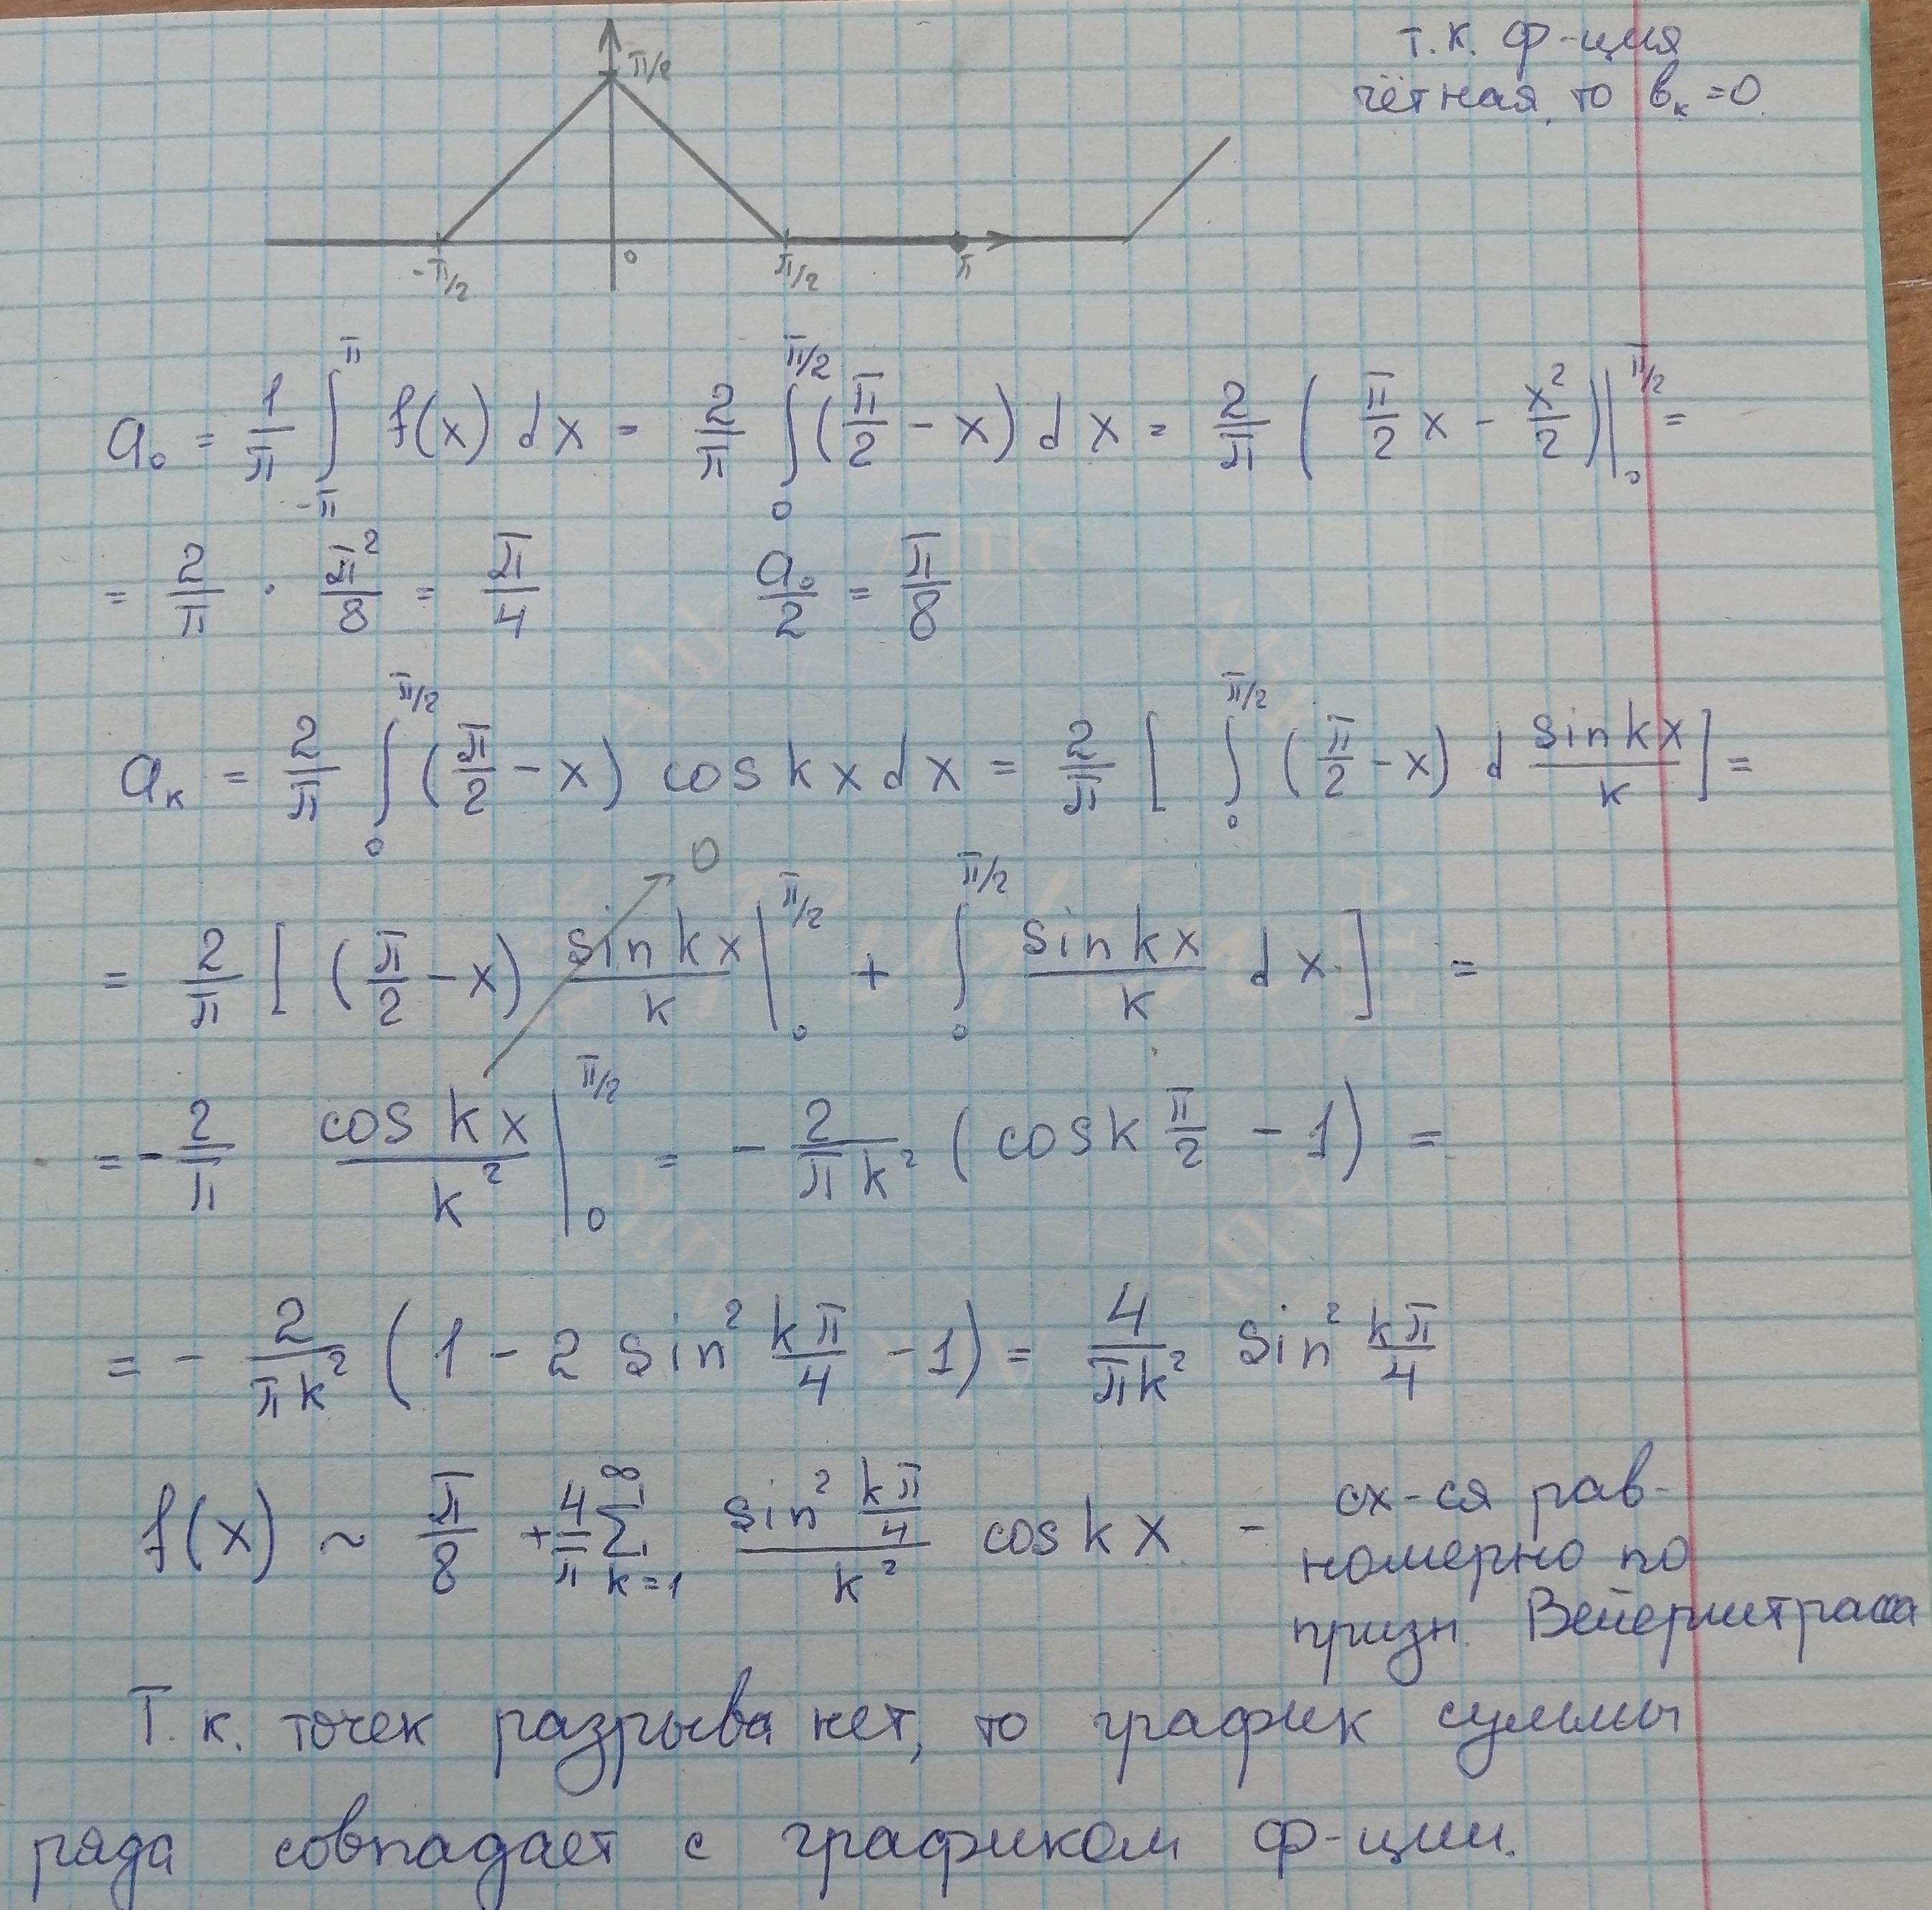 π/2
т.к. ф-ция
чётная, то bₖ = 0.
-π/2 0 π/2 π
a₀ = 1/π ∫_{-π}^{π} f(x) dx = 2/π ∫_0^{π/2} (π/2 - x) dx = 2/π (π/2 x - x²/2)|_0^{π/2} =
= 2/π · π²/8 = π/4 a₀/2 = π/8
aₖ = 2/π ∫_0^{π/2} (π/2 - x) cos kx dx = 2/π [ ∫_0^{π/2} (π/2 - x) d sin kx/k ] =
= 2/π [ (π/2 - x) sin kx/k |_0^{π/2} → 0 + ∫_0^{π/2} sin kx/k dx ] =
= - 2/π cos kx/k² |_0^{π/2} = - 2/πk² (cos k π/2 - 1) =
= - 2/πk² (1 - 2 sin² kπ/4 - 1) = 4/πk² sin² kπ/4
f(x) ~ π/8 + 4/π ∑_{k=1}^{∞} sin² kπ/4 / k² cos kx - сх-ся рав-
номерно по
призн. Вейерштрасса
Т.к. точек разрыва нет, то график суммы
ряда совпадает с графиком ф-ции.